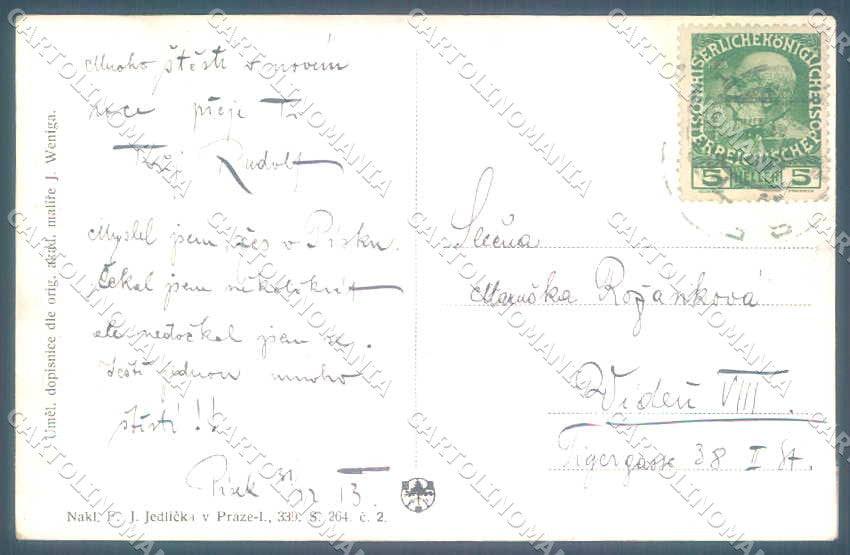 Mnoho štěstí v novém
roce přeje Ti
Tvůj Rudolf
Myslel jsem žes v Písku.
Čekal jsem několikrát
ale nedočkal jsem se.
Ještě jednou mnoho
štěstí!!
Písek 31/12 13.
Slečna
Maruška Rožánková
Vídeň VIII.
Tigergasse 38 II St.
KAISERLICHE KÖNIGLICHE
ÖSTERREICHISCHE POST
5 HELLER 5
Uměl. dopisnice dle orig. akad. malíře J. Weniga.
Nakl. F. J. Jedlička v Praze-I., 339. S. 264. č. 2.
CARTOLINOMANIA